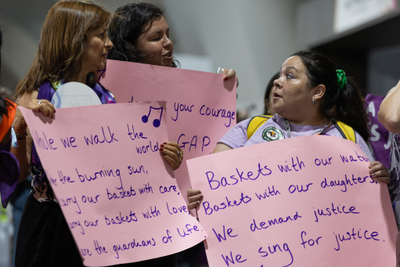 your courage
GAP
ile we walk the
world
the burning sun,
carry our basket with care,
carry our baskets with love
are the guardians of life
Baskets with our water
Baskets with our daughters,
We demand justice
We sing for justice.